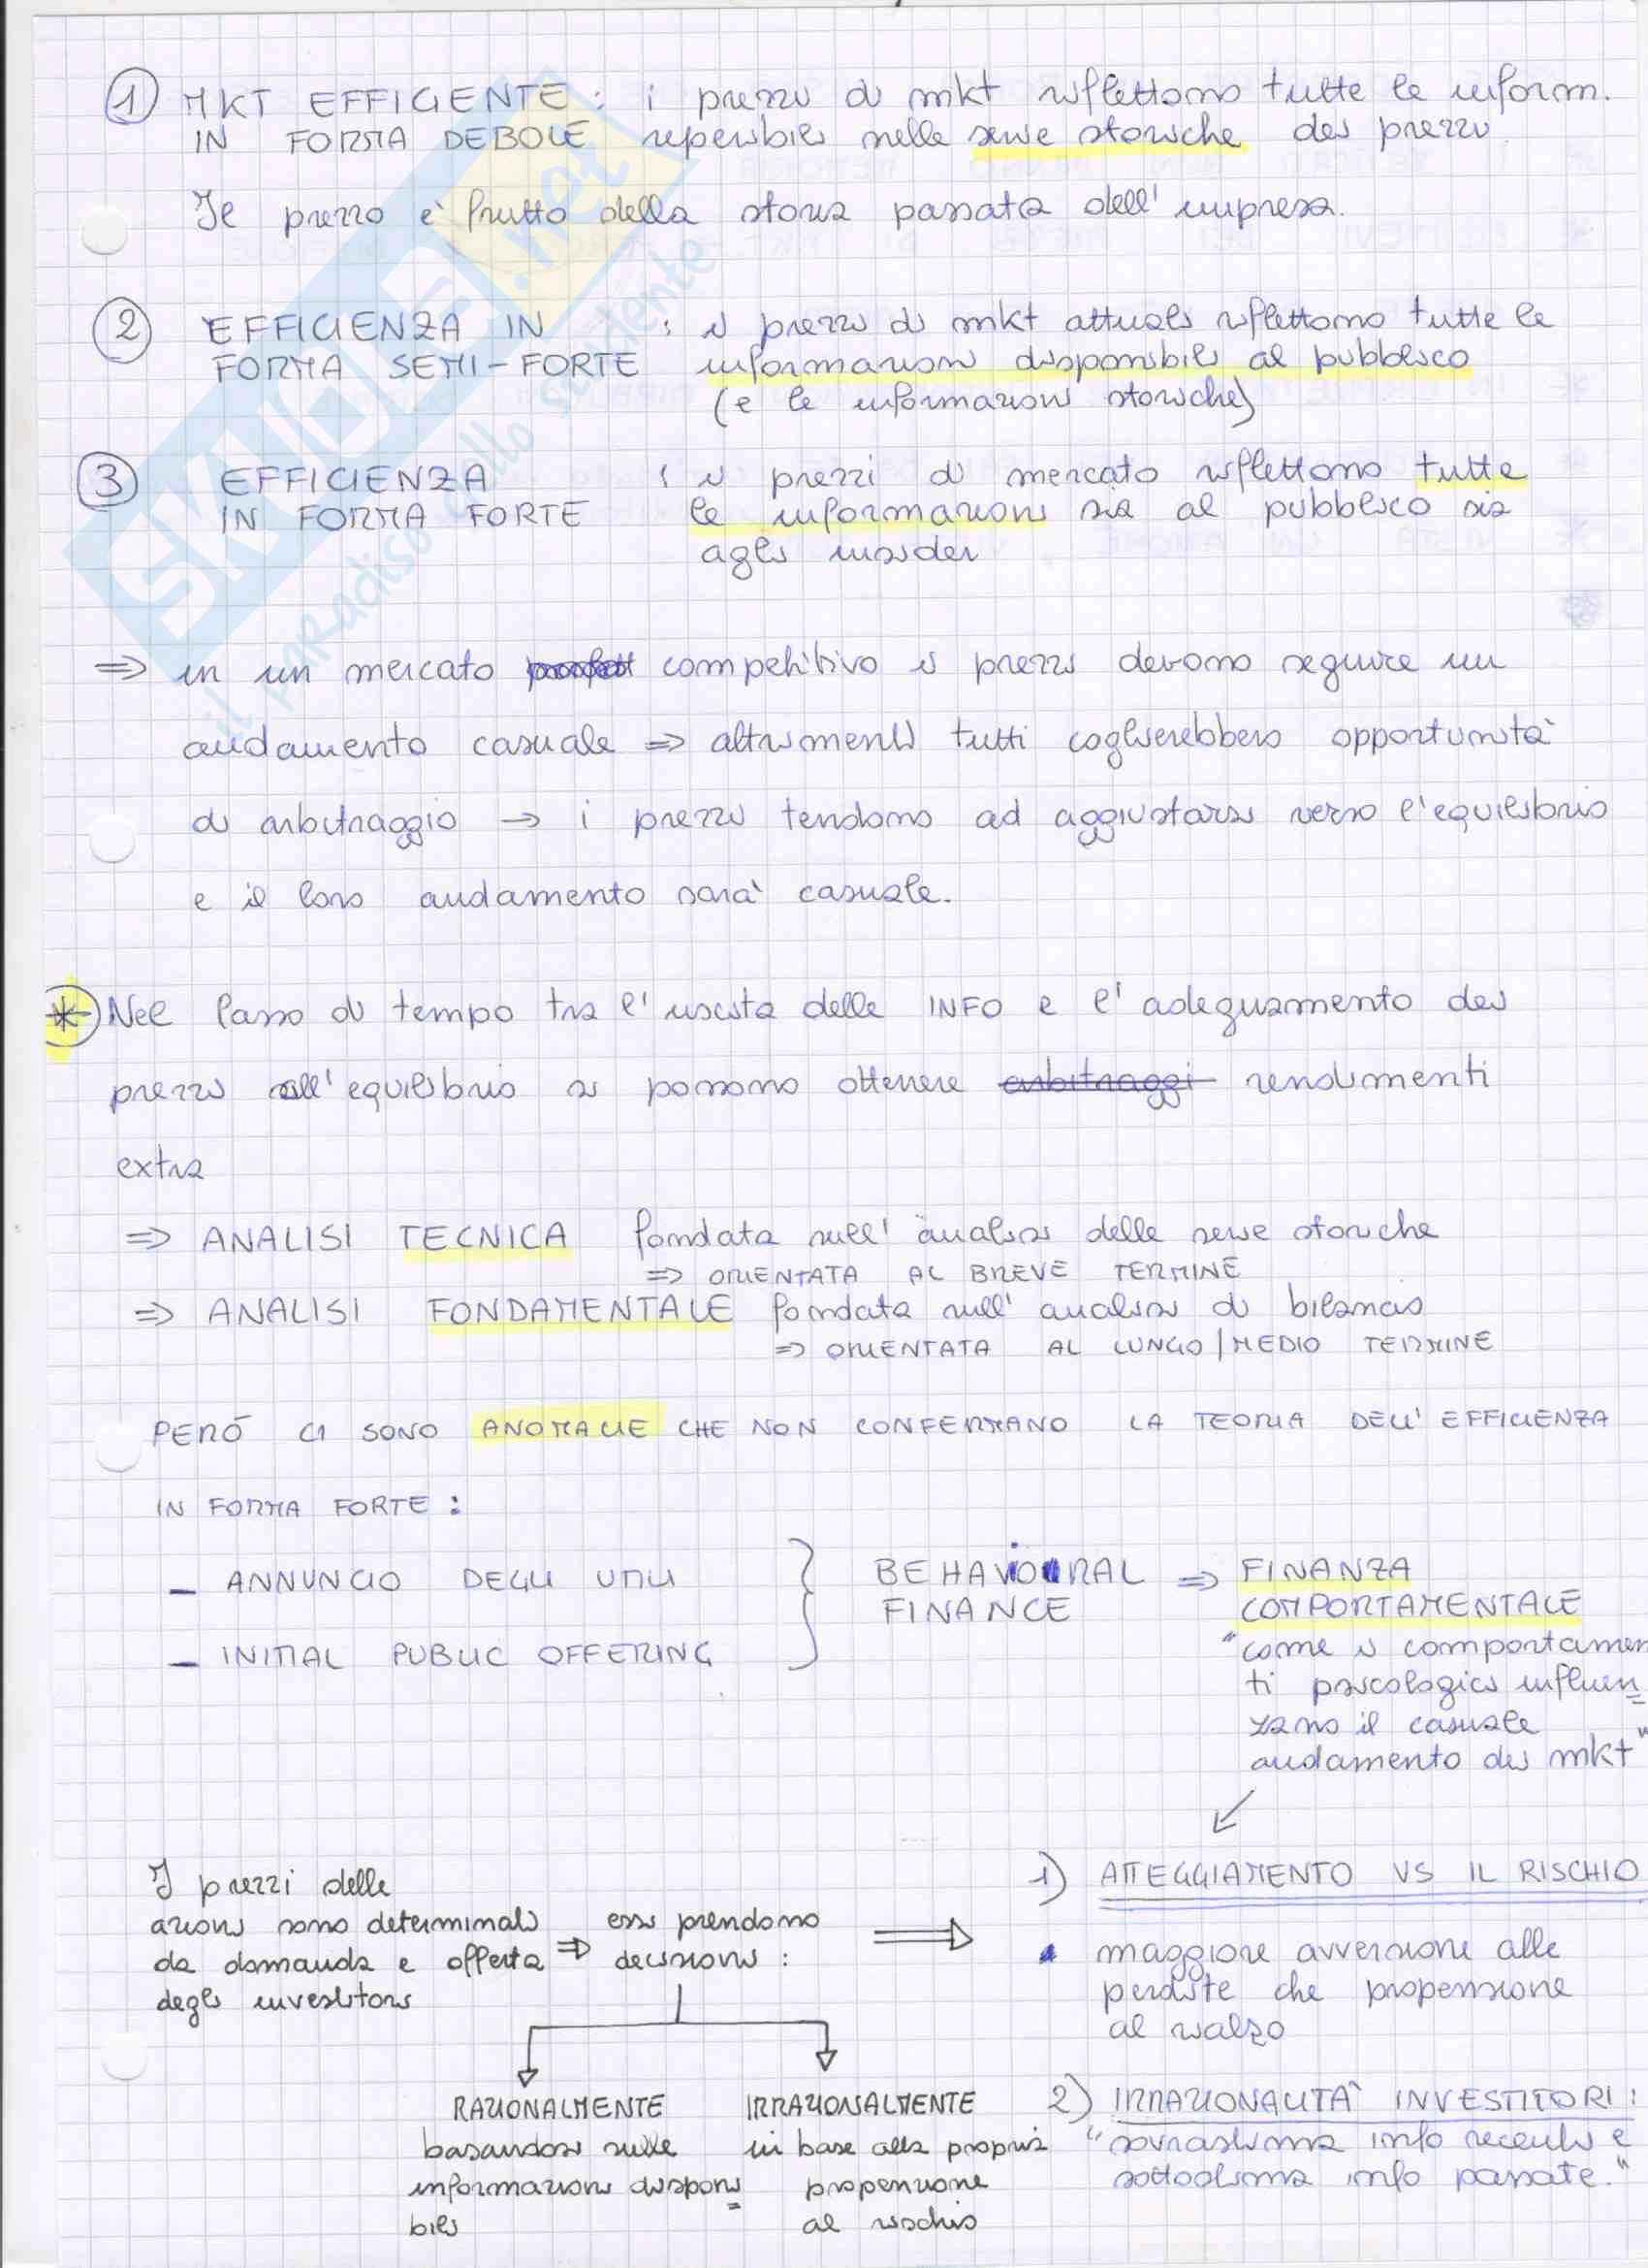 ① MKT EFFICIENTE : i prezzi di mkt riflettono tutte le inform.
IN FORMA DEBOLE reperibili nelle serie storiche dei prezzi.
Il prezzo è frutto della storia passata dell' impresa.
② EFFICIENZA IN : i prezzi di mkt attuali riflettono tutte le
FORMA SEMI-FORTE informazioni disponibili al pubblico
(e le informazioni storiche)
③ EFFICIENZA : i prezzi di mercato riflettono tutte
IN FORMA FORTE le informazioni sia al pubblico sia
agli insider
⇒ in un mercato competitivo i prezzi devono seguire un
andamento casuale ⇒ altrimenti tutti coglierebbero opportunità
di arbitraggio → i prezzi tendono ad aggiustarsi verso l'equilibrio
e il loro andamento sarà casuale.
* Nel lasso di tempo tra l'uscita delle INFO e l'adeguamento dei
prezzi all'equilibrio si possono ottenere arbitraggi rendimenti
extra
⇒ ANALISI TECNICA fondata sull' analisi delle serie storiche
⇒ ORIENTATA AL BREVE TERMINE
⇒ ANALISI FONDAMENTALE fondata sull' analisi di bilancio
⇒ ORIENTATA AL LUNGO/MEDIO TERMINE
PERÒ CI SONO ANOMALIE CHE NON CONFERMANO LA TEORIA DELL'EFFICIENZA
IN FORMA FORTE :
- ANNUNCIO DEGLI UTILI
- INITIAL PUBLIC OFFERING
BEHAVIOURAL ⇒ FINANZA
FINANCE COMPORTAMENTALE
"come i comportamen
ti psicologici influen=
zano il casuale
andamento dei mkt"
I prezzi delle
azioni sono determinati
da domanda e offerta ⇒
degli investitori
essi prendono
decisioni :
RAZIONALMENTE
basandosi sulle
informazioni disponi=
bili
IRRAZIONALMENTE
in base alla propria
propensione
al rischio
⇒ 1) ATTEGGIAMENTO VS IL RISCHIO
• maggiore avversione alle
perdite che propensione
al rialzo
2) IRRAZIONALITÀ INVESTITORI :
"sovrastima info recenti e
sottostima info passate."
SKUOLA.net
il paradiso dello studente